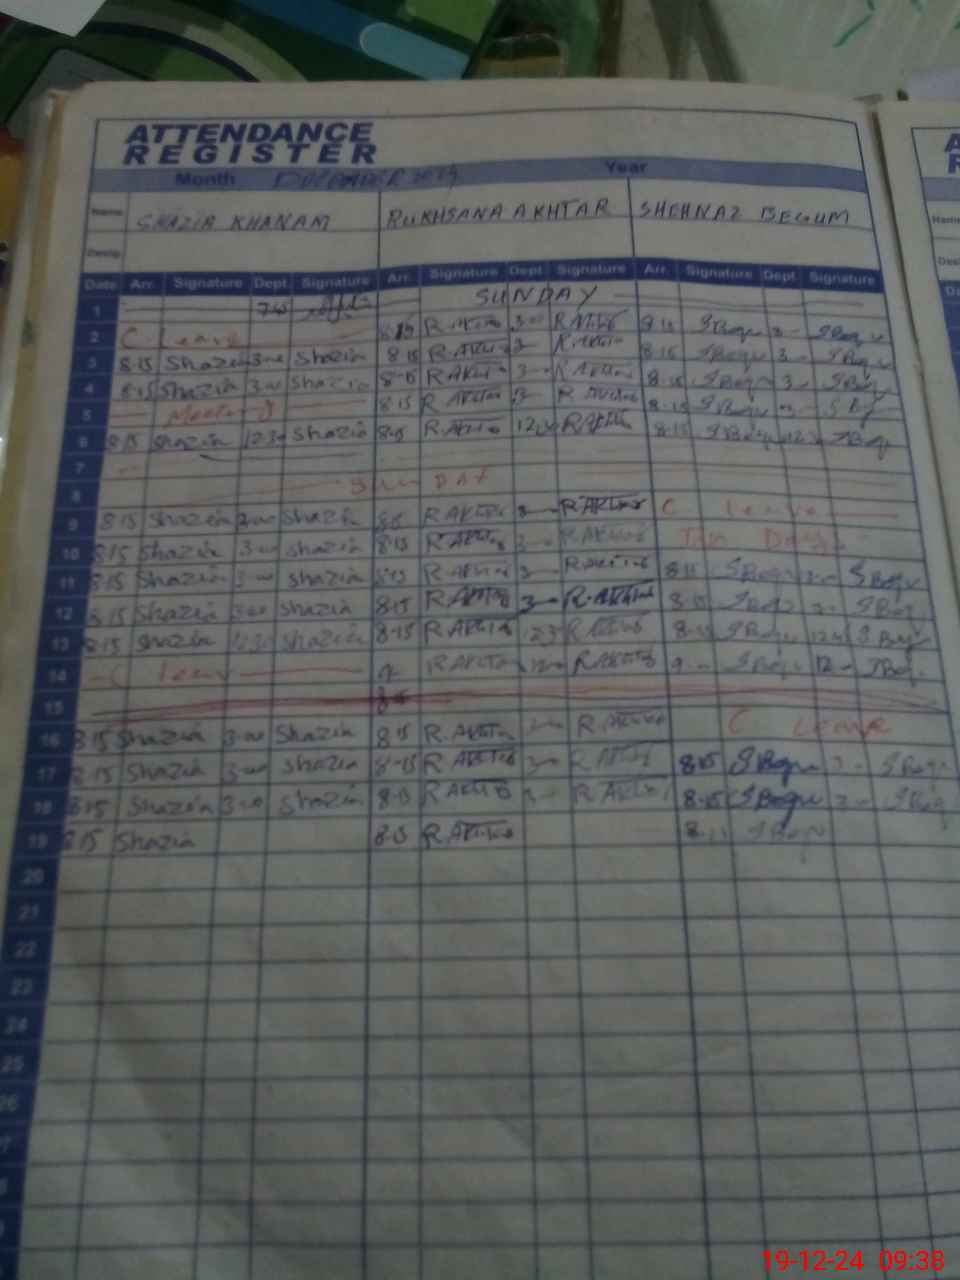 ATTENDANCE
REGISTER
Month DECEMBER 2024 Year
Name SHAZIA KHANAM RUKHSANA AKHTAR SHEHNAZ BEGUM
Desig.
Date Arr. Signature Dept. Signature Arr. Signature Dept. Signature Arr. Signature Dept. Signature
1 SUNDAY
2 C. Leave 8.15 R. AKhtar 3-00 8.15 SBegu 3- SBegu
3 8.15 Shazia 3-00 Shazia 8.15 R.AKhta 3- RAKhta 8.15 SBegu 3- SBegu
4 8.15 Shazia 3-00 Shazia 8-15 RAKhta 3- 8-15 SBegu 3- SBegu
5 Meeting 8.15 R AKhtar 3- R 8-15 SBegu SBegu
6 8.15 Shazia 12.30 Shazia 8.15 R.AKhta 12.30 RAKhta 8-15 SBegu 12.3 SBegu
7
8 SUNDAY
9 8.15 Shazia 3-00 Shazia 8.15 RAKhta 3- RAKhtar C Leave
10 8.15 Shazia 3-00 Shazia 8.15 R.AKhta 3- RAKhta Two Days
11 8.15 Shazia 3-00 Shazia 8.15 RAKhta 3- RAKhta 8.15 SBegu SBegu
12 8.15 Shazia 3-00 Shazia 8.15 RAKhta 3- R.AKhta 8.15 SBegu 3- SBegu
13 8.15 Shazia 12.30 Shazia 8.15 RAKhta 12.3 RAKhta 8.15 SBegu 12.3 SBegu
14 C Leav 9- RAKhta 12-00 RAKhta 9- SBegu 12- SBegu
15
16 8.15 Shazia 3-00 Shazia 8.15 R.AKhta R.AKhta C Leave
17 8.15 Shazia 3-00 Shazia 8.15 RAKhta 3- RAKhta 8.15 SBegu 3- SBegu
18 8.15 Shazia 3-00 Shazia 8.15 RAKhta 3- RAKhta 8.15 SBegu 3- SBegu
19 8.15 Shazia 8.15 R.AKhtar 8.15 SBegu
20
21
22
23
24
25
26
19-12-24 09:38